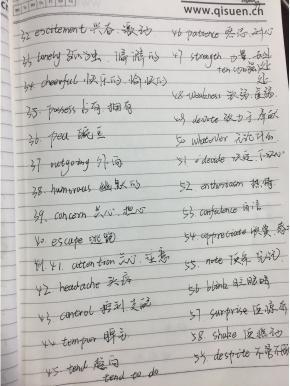 www.qisuen.ch
32 excitement 兴奋 激动
33 lonely 孤单
34 cheerful 快乐的 愉快的
35. possess 占有 拥有
36 pea 豌豆
37 outgoing 外向
38. humorous 幽默的
39. concern 关心 担心
40. escape 逃跑
41. attention 关心 注意
42. headache 头疼
43 control 控制
44 tempur
45. tend 趋向
tend to do
46 patience 忍耐 耐心
47 strength 力量 长处
ten
48 weakness
49 devote 奉献
50 whatever 无论什么
51 decide 决定 下决心
52 enthusiasm 热情
53. confidence 自信
54 appreciate 欣赏
55. note
56 blink
57 surprise
58. shake
59 despite 不管